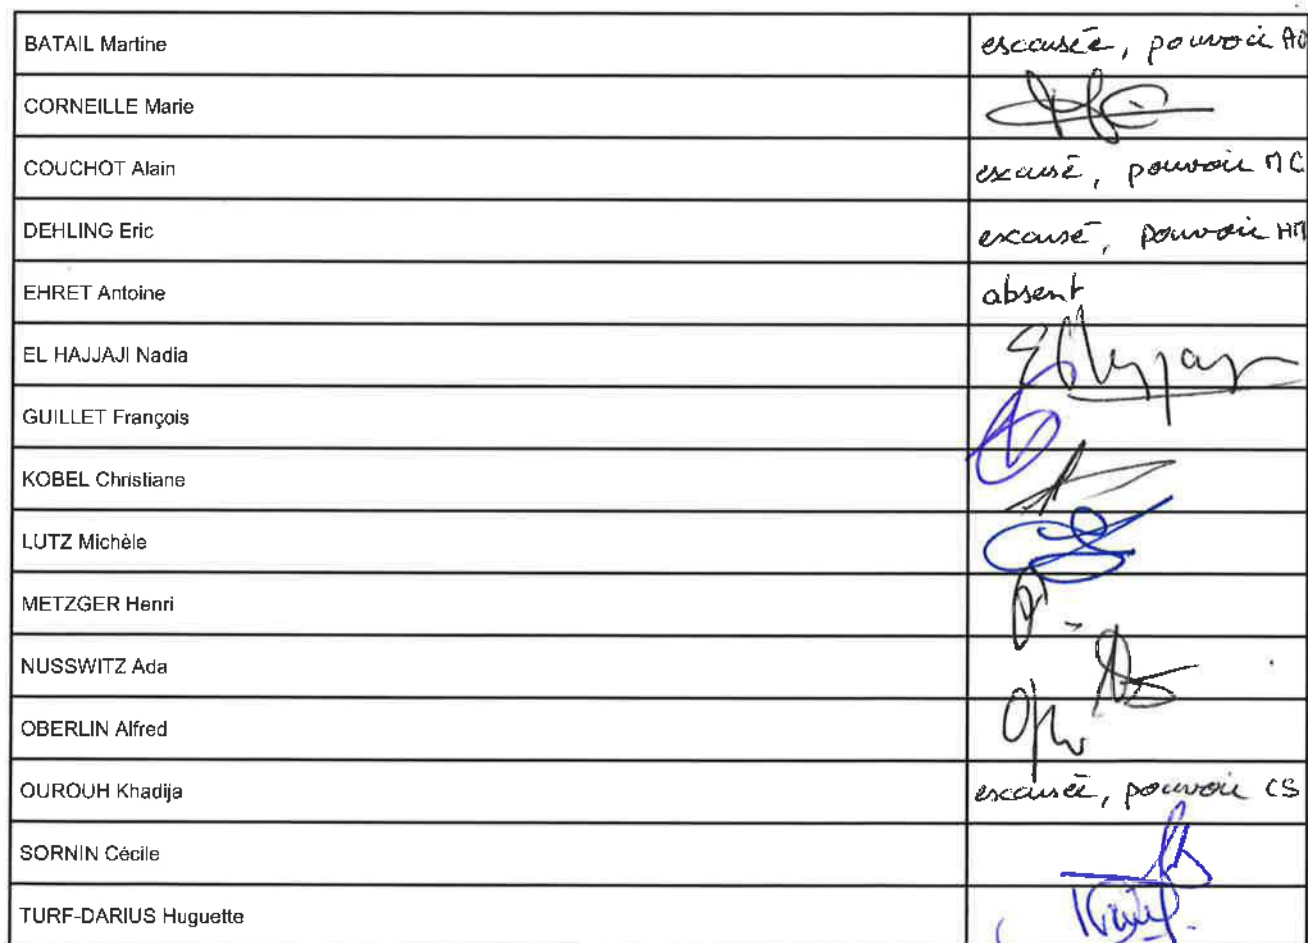 BATAIL Martine excusée, pouvoir AO
CORNEILLE Marie
COUCHOT Alain excusé, pouvoir MC
DEHLING Eric excusé, pouvoir HM
EHRET Antoine absent
EL HAJJAJI Nadia
GUILLET François
KOBEL Christiane
LUTZ Michèle
METZGER Henri
NUSSWITZ Ada
OBERLIN Alfred
OUROUH Khadija excusée, pouvoir CS
SORNIN Cécile
TURF-DARIUS Huguette